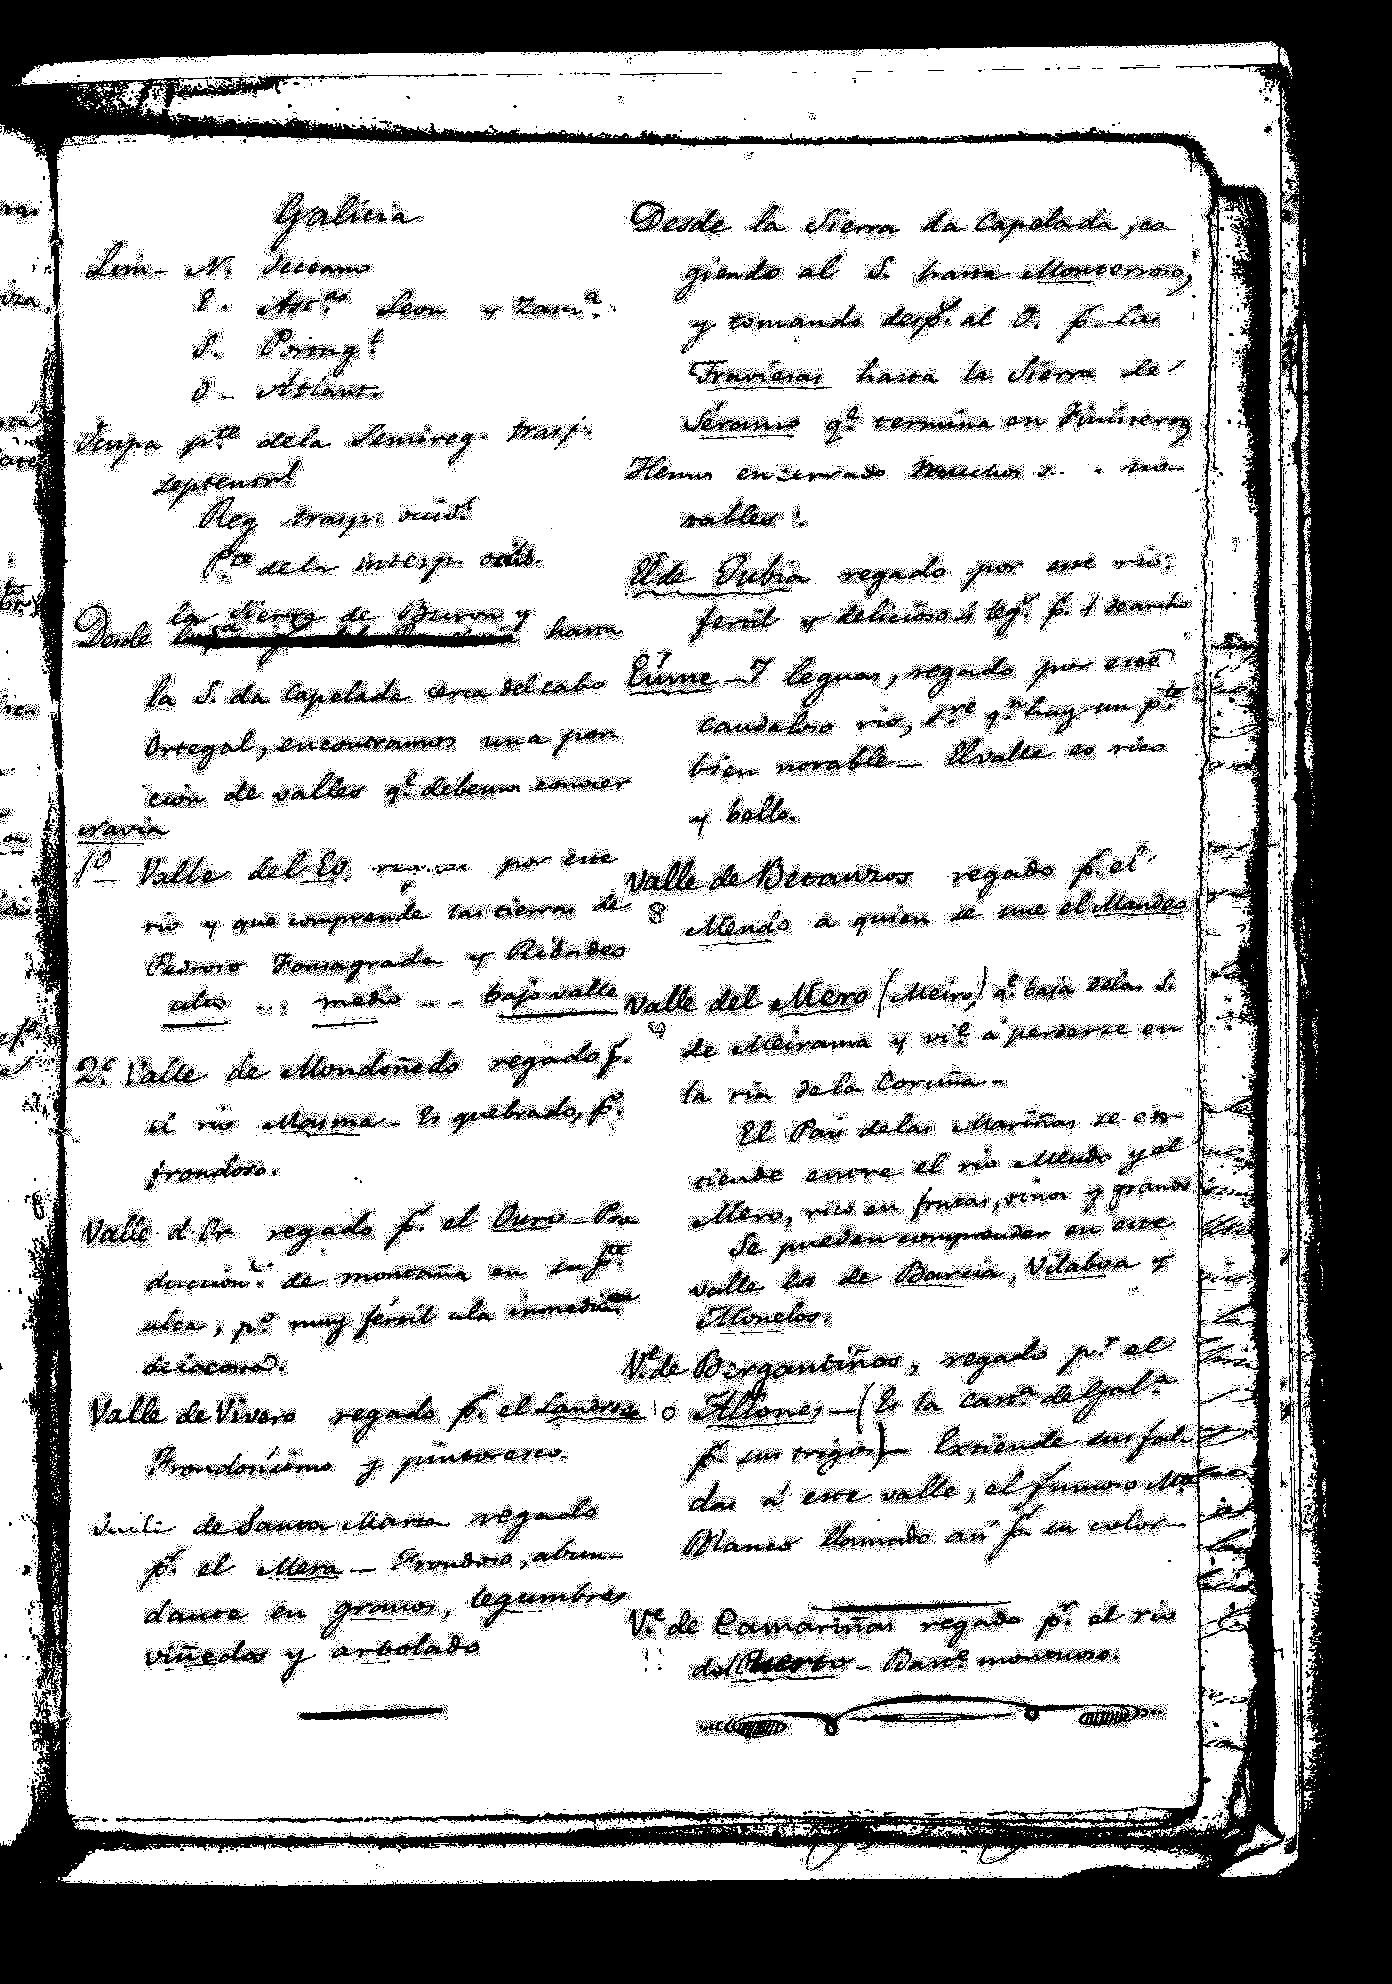 Galicia
Lim- N. Océano
E. Ast.as Leon y Zam.a
S. Portug.l
O- Atlant.
Ocupa p.te de la Semireg. trasp.
septentr.l
Reg. trasp. occid.l
P.te de la intersp. occid.
la Sierra de Burron y
Desde hasta
la S. da Capelada cerca del cabo
Ortegal, encontramos una por
ción de valles q.e debemos conocer
1º Valle del Eo, por ese
rio y que comprende las tierras de
Pedroso Fonsagrada y Ribadeo
alto medio -- bajo valle
2.º Valle de Mondoñedo regado p.
el rio Masma- Es quebrado, p.o
frondoso.
Valle d. Or regado p.r el Ouro- Pro
ducción.s de montaña en su p.te
alta, p.o muy fértil a la inmediac.on
de la costa.
Valle de Vivero regado p.r el Landrove
Frondosísimo y pintoresco.
de Santa Marta regado
p.r el Mera - Frondoso, abun-
dante en granos, legumbres
viñedos y arbolado
Desde la Sierra da Capelada, co
giendo al S. hasta Monterroso,
y tomando desp.s al O. p.r las
Traviesas hasta la Sierra de
q.e termina en Finisterre
Hemos encerrado no-
tables:
El de Jubia regado por ese rio:
fertil y delicioso leg.s p. 1 de ancho
Eume - 7 leguas, regado por este
caudaloso rio, sre q.n hay un p.te
bien notable - El valle es rico
y bello.
Valle de Betanzos regado p.r el
8 Mendo a quien se une el Mandeo
Valle del Mero (Meiro) q.e baja de las S.
9 de Meirama y vi.e a perderse en
la ria de la Coruña-
El Pais de las Mariñas se ex-
tiende entre el rio Mendo y el
Mero, rico en frutas, vinos y granos
Se pueden comprender en este
valle los de Barcia, Vilaboa y
Monelos.
V.e de Bergantiños, regado p.r el
10 Allones - (Es la Cast.a de Gal.a
p.r sus trigos) - Extiende sus fal-
das a este valle, el famoso Mte
Blanco llamado así p.r su color-
V.e de Camariñas regado p.r el rio
11 del Puerto - Bast.e montuoso.